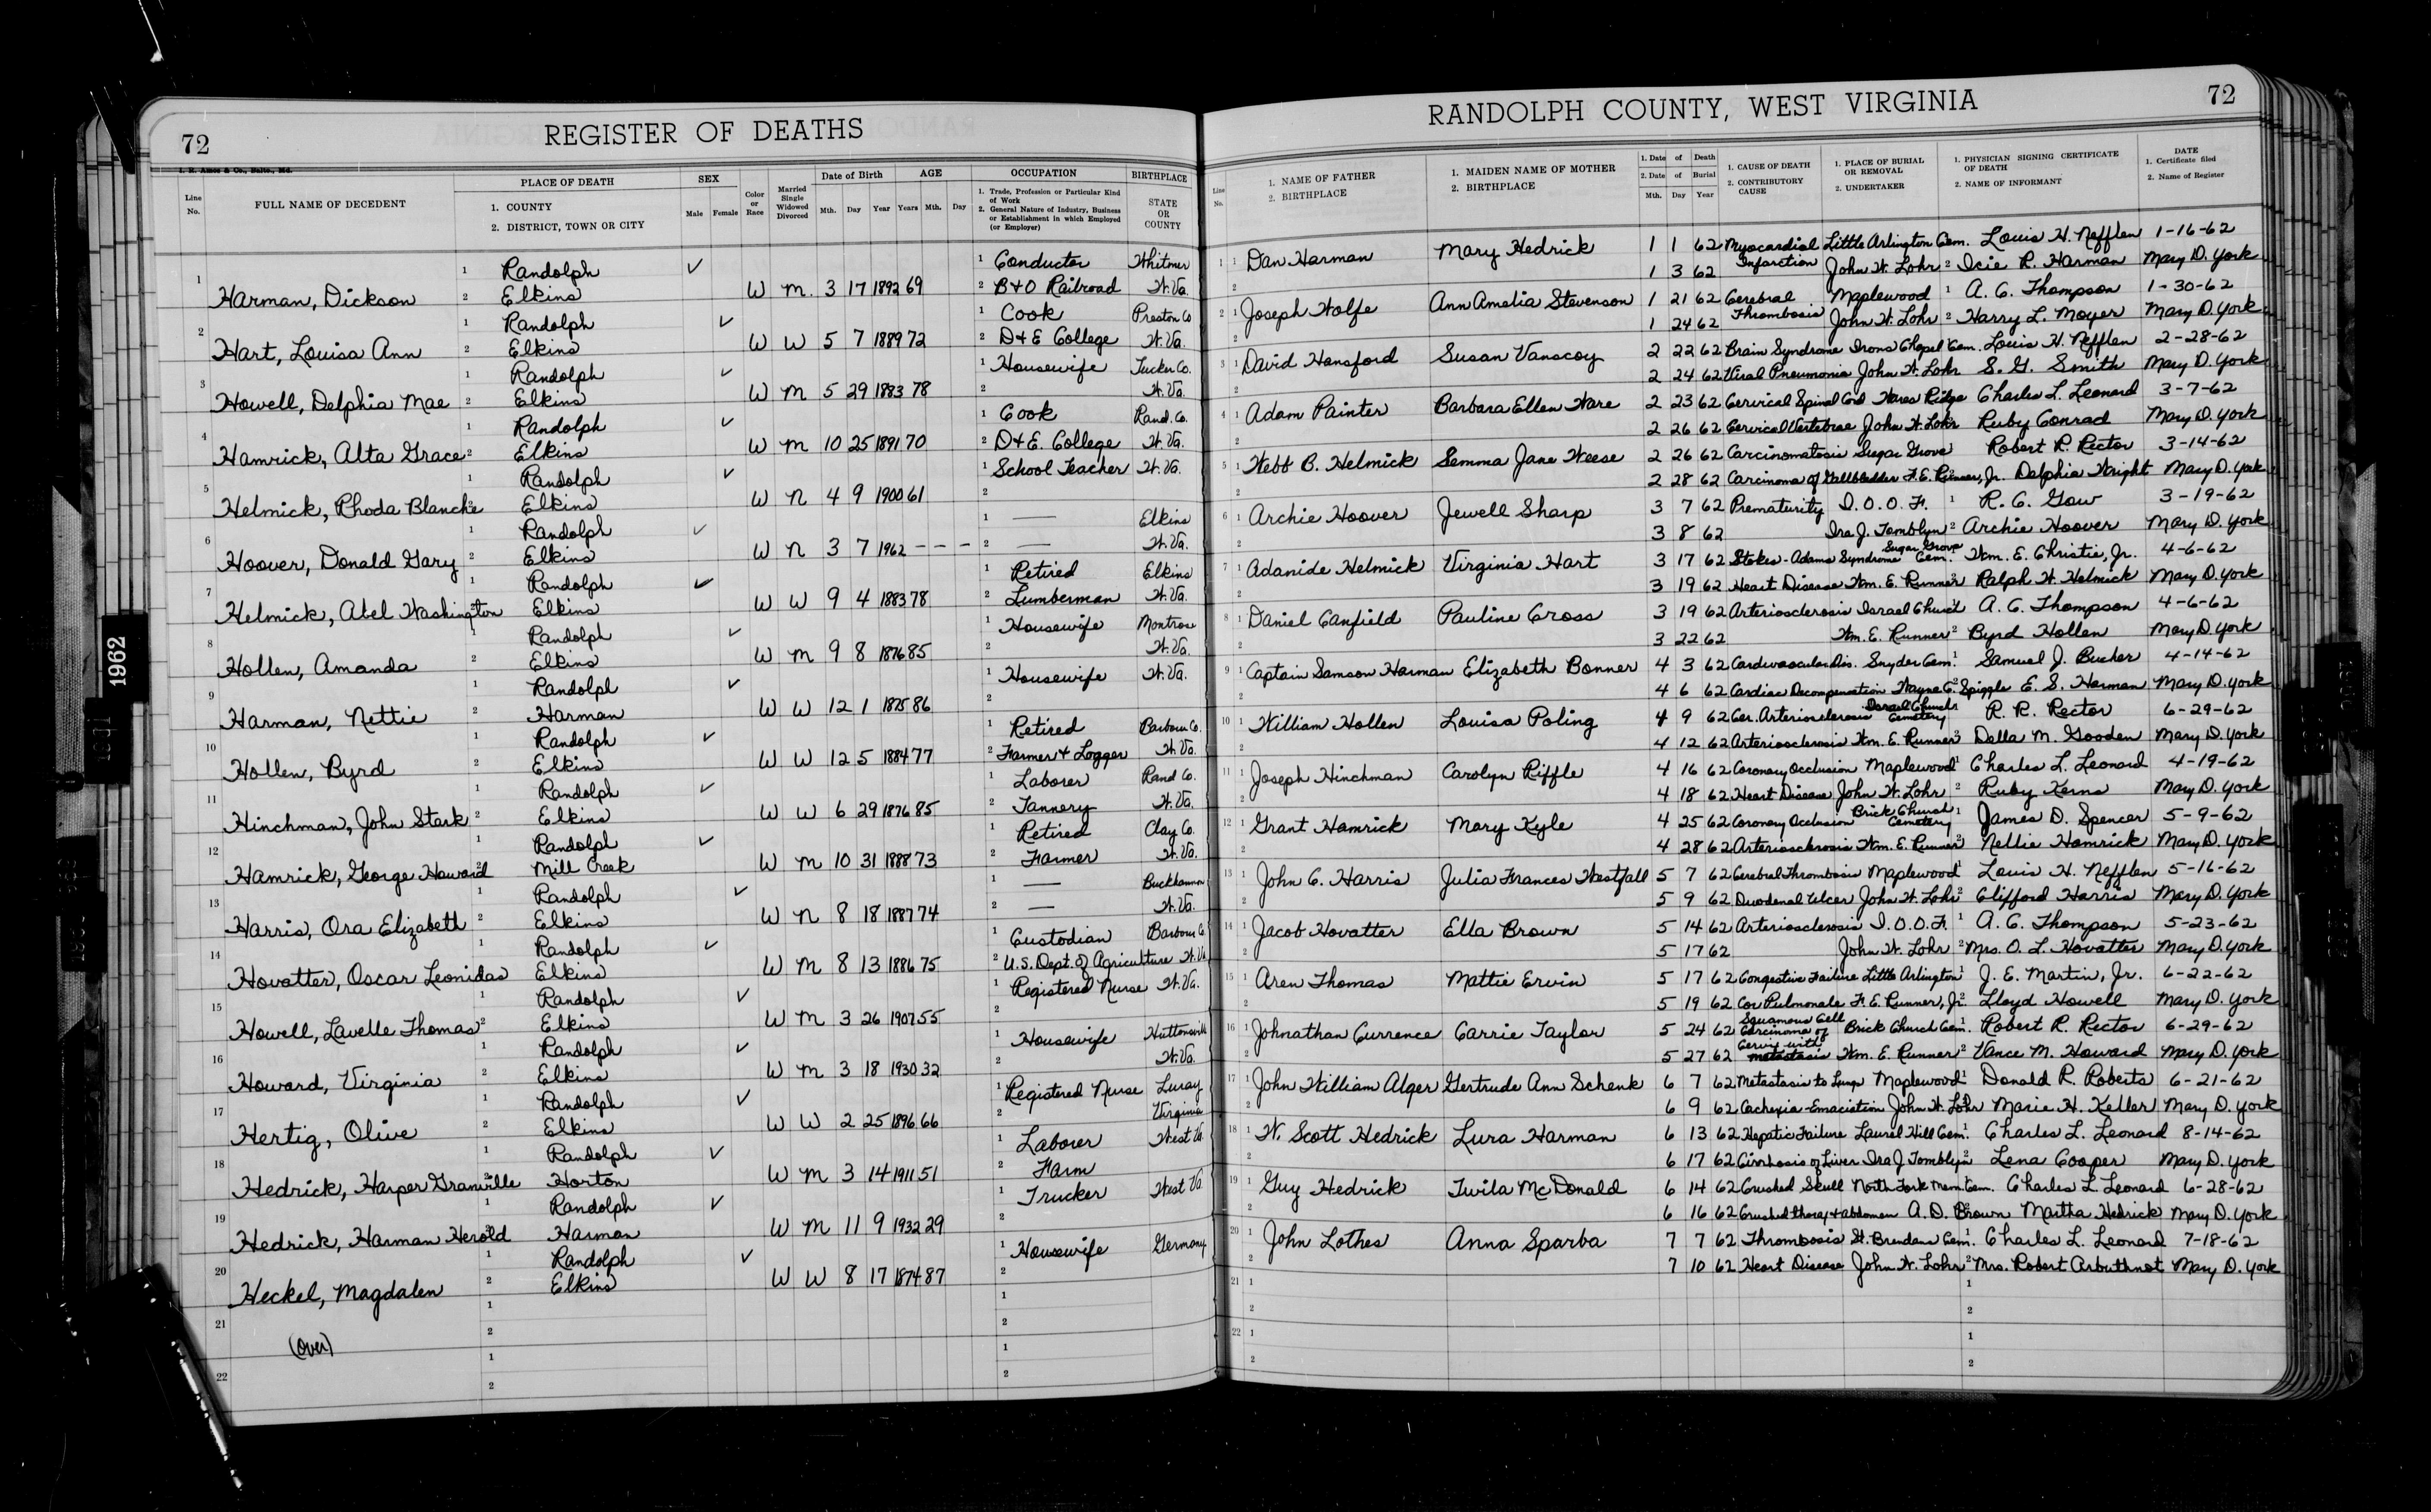 72 REGISTER OF DEATHS
RANDOLPH COUNTY, WEST VIRGINIA 72
I. R. Amos & Co., Balto., Md.
Line No. FULL NAME OF DECEDENT PLACE OF DEATH 1. COUNTY 2. DISTRICT, TOWN OR CITY SEX Male Female Color or Race Married Single Widowed Divorced Date of Birth Mth. Day Year AGE Years Mth. Day OCCUPATION 1. Trade, Profession or Particular Kind of Work 2. General Nature of Industry, Business or Establishment in which Employed (or Employer) BIRTHPLACE STATE OR COUNTY
Line No. 1. NAME OF FATHER 2. BIRTHPLACE 1. MAIDEN NAME OF MOTHER 2. BIRTHPLACE 1. Date of Death 2. Date of Burial Mth. Day Year 1. CAUSE OF DEATH 2. CONTRIBUTORY CAUSE 1. PLACE OF BURIAL OR REMOVAL 2. UNDERTAKER 1. PHYSICIAN SIGNING CERTIFICATE OF DEATH 2. NAME OF INFORMANT DATE 1. Certificate filed 2. Name of Register
1 Harman, Dickson 1 Randolph 2 Elkins ✓ W M. 3 17 1892 69 1 Conductor 2 B+O Railroad Whitmer W.Va.
2 Hart, Louisa Ann 1 Randolph 2 Elkins ✓ W W 5 7 1889 72 1 Cook 2 D+E College Preston Co W.Va.
3 Howell, Delphia Mae 1 Randolph 2 Elkins ✓ W M 5 29 1883 78 1 Housewife 2 Tucker Co. W.Va.
4 Hamrick, Alta Grace 1 Randolph 2 Elkins ✓ W M 10 25 1891 70 1 Cook 2 D+E. College Rand. Co. W.Va.
5 Helmick, Rhoda Blanche 1 Randolph 2 Elkins ✓ W N 4 9 1900 61 1 School Teacher 2 W.Va.
6 Hoover, Donald Gary 1 Randolph 2 Elkins ✓ W N 3 7 1962 - - - 1 — 2 — Elkins W.Va.
7 Helmick, Abel Washington 1 Randolph 2 Elkins ✓ W W 9 4 1883 78 1 Retired 2 Lumberman Elkins W.Va.
8 Hollen, Amanda 1 Randolph 2 Elkins ✓ W M 9 8 1876 85 1 Housewife 2 Montrose W.Va.
9 Harman, Nettie 1 Randolph 2 Harman ✓ W W 12 1 1875 86 1 Housewife 2 W.Va.
10 Hollen, Byrd 1 Randolph 2 Elkins ✓ W W 12 5 1884 77 1 Retired 2 Farmer + Logger Barbour Co. W.Va.
11 Hinchman, John Stark 1 Randolph 2 Elkins ✓ W W 6 29 1876 85 1 Laborer 2 Tannery Rand Co. W.Va.
12 Hamrick, George Howard 1 Randolph 2 Mill Creek ✓ W M 10 31 1888 73 1 Retired 2 Farmer Clay Co. W.Va.
13 Harris, Ora Elizabeth 1 Randolph 2 Elkins ✓ W N 8 18 1887 74 1 — 2 — Buckhannon W.Va.
14 Hovatter, Oscar Leonidas 1 Randolph 2 Elkins ✓ W M 8 13 1886 75 1 Custodian 2 U.S. Dept. of Agriculture Barbour Co W.Va
15 Howell, Lavelle Thomas 1 Randolph 2 Elkins ✓ W M 3 26 1907 55 1 Registered Nurse 2 W.Va.
16 Howard, Virginia 1 Randolph 2 Elkins ✓ W M 3 18 1930 32 1 Housewife 2 Huttonsville W.Va.
17 Hertig, Olive 1 Randolph 2 Elkins ✓ W W 2 25 1896 66 1 Registered Nurse 2 Luray Virginia
18 Hedrick, Harper Granville 1 Randolph 2 Horton ✓ W M 3 14 1911 51 1 Laborer 2 Farm West Va.
19 Hedrick, Harman Herold 1 Randolph 2 Harman ✓ W M 11 9 1932 29 1 Trucker 2 West Va
20 Heckel, Magdalen 1 Randolph 2 Elkins ✓ W W 8 17 1874 87 1 Housewife 2 Germany
21 (over) 1 2 1 2
22 1 2 1 2
1 1 Dan Harman Mary Hedrick 1 1 62 Myocardial Infarction Little Arlington Cem. Louis H. Nefflen 1-16-62
2 1 3 62 John W. Lohr 2 Icie R. Harman Mary D. York
2 1 Joseph Wolfe Ann Amelia Stevenson 1 21 62 Cerebral Thrombosis Maplewood 1 A. C. Thompson 1-30-62
2 1 24 62 John W. Lohr 2 Harry L. Moyer Mary D. York
3 1 David Hansford Susan Vanscoy 2 22 62 Brain Syndrome Irons Chapel Cem. Louis H. Nefflen 2-28-62
2 2 24 62 Viral Pneumonia John W. Lohr S. G. Smith Mary D. York
4 1 Adam Painter Barbara Ellen Ware 2 23 62 Cervical Spinal Cord Wares Ridge Charles L. Leonard 3-7-62
2 2 26 62 Cervical Vertebrae John W. Lohr Ruby Conrad Mary D. York
5 1 Webb B. Helmick Semma Jane Weese 2 26 62 Carcinomatosis Sugar Grove Robert R. Rector 3-14-62
2 2 28 62 Carcinoma of Gallbladder F. E. Runner, Jr. Delphia Wright Mary D. York
6 1 Archie Hoover Jewell Sharp 3 7 62 Prematurity I.O.O.F. 1 R. C. Gow 3-19-62
2 3 8 62 Ira J. Tomblyn 2 Archie Hoover Mary D. York
7 1 Adanide Helmick Virginia Hart 3 17 62 Stokes-Adams Syndrome Sugar Grove Cem. Wm. E. Christie, Jr. 4-6-62
2 3 19 62 Heart Disease Wm. E. Runner Ralph W. Helmick Mary D. York
8 1 Daniel Canfield Pauline Cross 3 19 62 Arteriosclerosis Israel Church A. C. Thompson 4-6-62
2 3 22 62 Wm. E. Runner 2 Byrd Hollen Mary D. York
9 1 Captain Samson Harman Elizabeth Bonner 4 3 62 Cardiovascular Dis. Snyder Cem. 1 Samuel J. Bucher 4-14-62
2 4 6 62 Cardiac Decompensation Wayne C. Spiggle 2 E. S. Harman Mary D. York
10 1 William Hollen Louisa Poling 4 9 62 Cer. Arteriosclerosis Israel Church Cemetery R. R. Rector 6-29-62
2 4 12 62 Arteriosclerosis Wm. E. Runner 2 Della M. Gooden Mary D. York
11 1 Joseph Hinchman Carolyn Riffle 4 16 62 Coronary Occlusion Maplewood 1 Charles L. Leonard 4-19-62
2 4 18 62 Heart Disease John W. Lohr 2 Ruby Kerns Mary D. York
12 1 Grant Hamrick Mary Kyle 4 25 62 Coronary Occlusion Brick Church Cemetery 1 James D. Spencer 5-9-62
2 4 28 62 Arteriosclerosis Wm. E. Runner 2 Nellie Hamrick Mary D. York
13 1 John C. Harris Julia Frances Westfall 5 7 62 Cerebral Thrombosis Maplewood 1 Louis H. Nefflen 5-16-62
2 5 9 62 Duodenal Ulcer John W. Lohr 2 Clifford Harris Mary D. York
14 1 Jacob Hovatter Ella Brown 5 14 62 Arteriosclerosis I.O.O.F. 1 A. C. Thompson 5-23-62
2 5 17 62 John W. Lohr 2 Mrs. O. L. Hovatter Mary D. York
15 1 Aren Thomas Mattie Ervin 5 17 62 Congestive Failure Little Arlington 1 J. E. Martin, Jr. 6-22-62
2 5 19 62 Cor Pulmonale F. E. Runner, Jr. 2 Lloyd Howell Mary D. York
16 1 Johnathan Currence Carrie Taylor 5 24 62 Squamous Cell Carcinoma of Cervix with metastasis Brick Church Cem. 1 Robert R. Rector 6-29-62
2 5 27 62 Wm. E. Runner 2 Vance M. Howard Mary D. York
17 1 John William Alger Gertrude Ann Schenk 6 7 62 Metastasis to Lungs Maplewood 1 Donald R. Roberts 6-21-62
2 6 9 62 Cachexia-Emaciation John W. Lohr 2 Marie H. Keller Mary D. York
18 1 W. Scott Hedrick Lura Harman 6 13 62 Hepatic Failure Laurel Hill Cem. 1 Charles L. Leonard 8-14-62
2 6 17 62 Cirrhosis of Liver Ira J Tomblyn 2 Lena Cooper Mary D. York
19 1 Guy Hedrick Twila McDonald 6 14 62 Crushed Skull North Fork Mem. Cem. Charles L. Leonard 6-28-62
2 6 16 62 Crushed thorax + abdomen A. D. Brown Martha Hedrick Mary D. York
20 1 John Lothes Anna Sparba 7 7 62 Thrombosis St. Brendans Cem. 1 Charles L. Leonard 7-18-62
2 7 10 62 Heart Disease John W. Lohr 2 Mrs. Robert Arbuthnot Mary D. York
21 1 1
2 2
22 1 1
2 2
1962